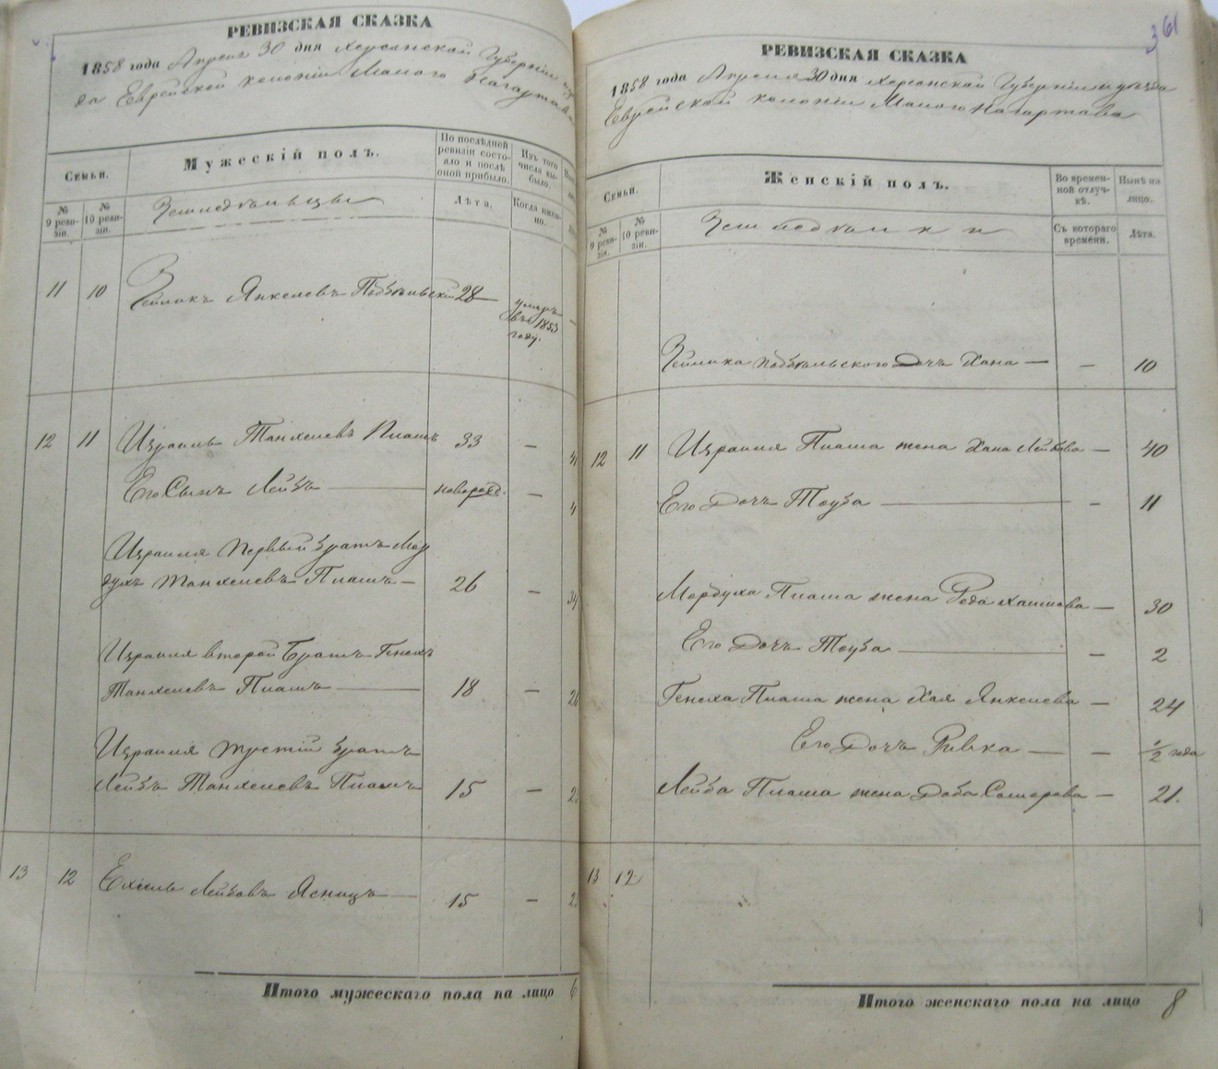 РЕВИЗСКАЯ СКАЗКА
1858 года Апреля 30 дня Херсонской Губернии и уез
да Еврейской колонии Малого Нагартова
Семьи.
Мужескій полъ.
По послѣдней ревизіи состояло и послѣ оной прибыло.
Изъ того числа выбыло.
№ 9 ревизіи.
№ 10 ревизіи.
Земледѣльцы
Лѣта.
Когда именно.
11 10 Зейликъ Янкелевъ Подольскій 28 умеръ въ 1853 году.
12 11 Израиль Танхелевъ Плашъ 33 —
Его Сынъ Лейбъ новорожд. —
Израиля первый братъ Мор
духъ Танхелевъ Плашъ — 26 —
Израиля второй Братъ Генехъ
Танхелевъ Плашъ 18 —
Израиля третій братъ
Лейбъ Танхелевъ Плашъ 15 —
13 12 Ехіель Лейбовъ Ясницъ 15 —
Итого мужескаго пола на лицо 6
361
РЕВИЗСКАЯ СКАЗКА
1858 года Апреля 30 дня Херсонской Губерніи и уезда
Еврейской колоніи Малого Нагартова
Семьи.
Женскій полъ.
Во временной отлучкѣ.
Нынѣ на лицо.
№ 9 ревизіи.
№ 10 ревизіи.
Съ котораго времени.
Лѣта.
Зейлика Подольского Дочь Хана — — 10
12 11 Израиля Плаша жена Хана Лейбова — 40
Его Дочь Тоуба — 11
Мордуха Плаша жена — 30
Его Дочь Тоуба — 2
Генеха Плаша жена Хая Янкелева — 24
Его Дочь Ривка — — 1/2 года
Лейба Плаша жена Доба — 21.
13 12
Итого женскаго пола на лицо 8